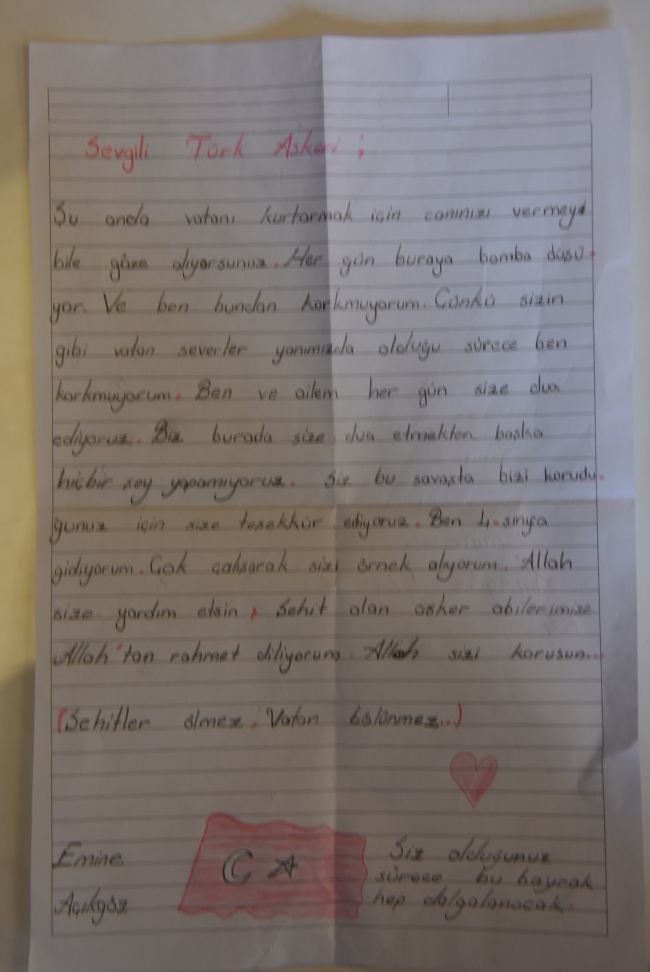 Sevgili Türk Askeri ;
Şu anda vatanı kurtarmak için canınızı vermeyi
bile göze alıyorsunuz. Her gün buraya bomba düşü-
yor. Ve ben bundan korkmuyorum. Çünkü sizin
gibi vatan severler yanımızda olduğu sürece ben
korkmuyorum. Ben ve ailem her gün size dua
ediyoruz. Biz burada size dua etmekten başka
hiçbir şey yapamıyoruz. Siz bu savaşta bizi korudu-
ğunuz için size teşekkür ediyoruz. Ben 4. sınıfa
gidiyorum. Çok çalışarak sizi örnek alıyorum. Allah
size yardım etsin, Şehit olan asker abilerimize
Allah'tan rahmet diliyorum. Allah sizi korusun...
(Şehitler ölmez. Vatan bölünmez...)
Emine
Açıkgöz
Siz olduğunuz
sürece bu bayrak
hep dalgalanacak.